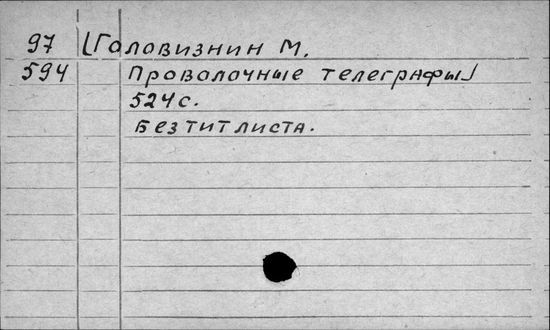 97 [Головизнин М.
594 Проволочные телеграфы]
524 с.
Без тит листа.